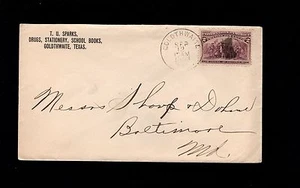 T. U. SPARKS,
DRUGS, STATIONERY, SCHOOL BOOKS,
GOLDTHWAITE, TEXAS.
SEP
Messrs Sharp & Dohme
Baltimore
Md.